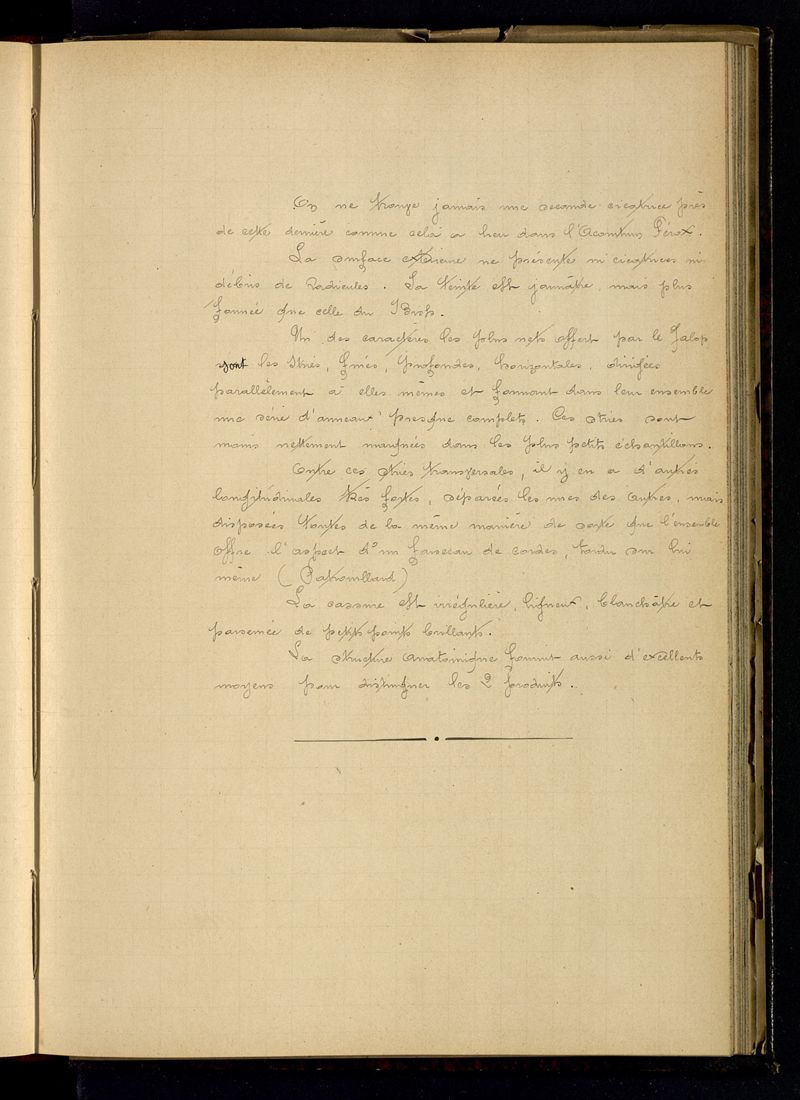 On ne trouve jamais une seconde cicatrice près
de cette dernière comme cela a lieu dans l'Aconitum Férox.
La surface extérieure ne présente ni cicatrices ni
débris de Radicules. La teinte est jaunâtre, mais plus
foncée que celle du
Un des caractères les plus nets offert par le Jalap
sont les stries, fines, profondes, horizontales, dirigées
parallèlement à elles mêmes et formant dans leur ensemble
une série d'anneaux presque complets. Ces stries sont
moins nettement marquées dans les plus petits échantillons.
Entre ces stries transversales, il y en a d'autres
longitudinales très fortes, séparées les unes des autres, mais
disposées toutes de la même manière de sorte que l'ensemble
offre l'aspect d'un faisceau de cordes, tordu sur lui
même (Patrouillard)
La cassure est irrégulière, ligneux, blanchâtre et
parsemée de petits points brillants.
La structure anatomique fournit aussi d'excellents
moyens pour distinguer les 2 produits.